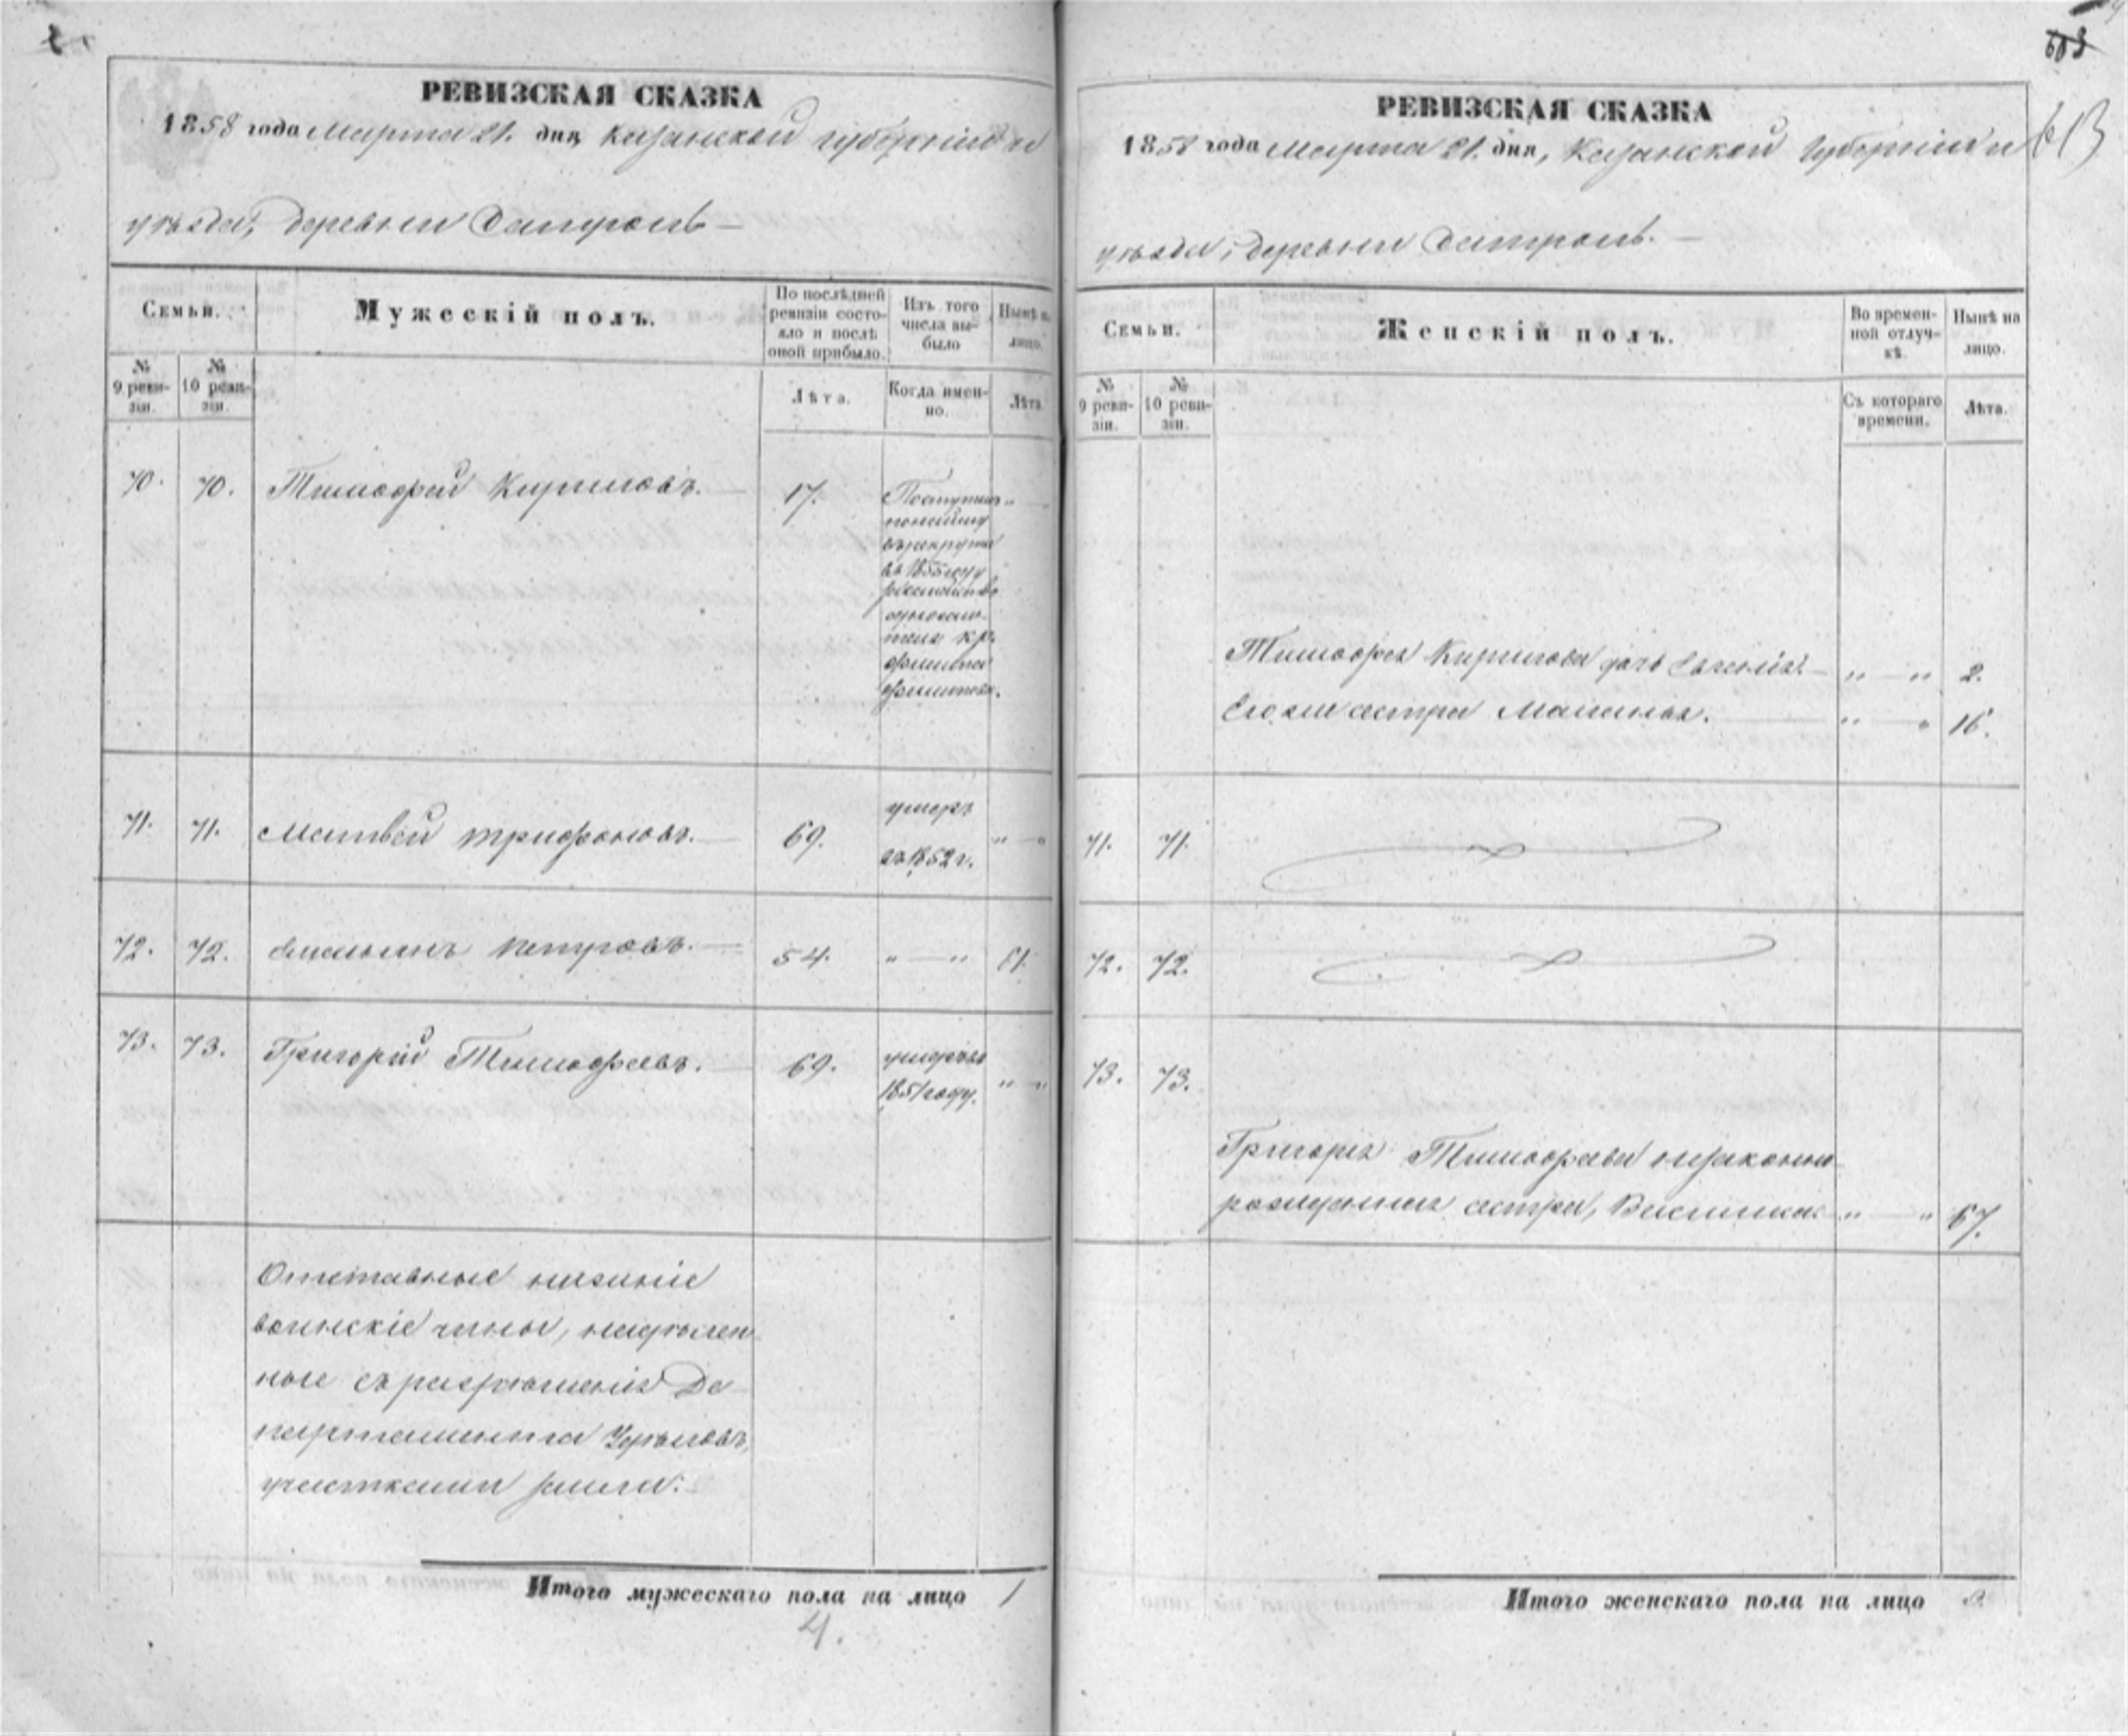 РЕВИЗСКАЯ СКАЗКА
1858 года Марта 21. дня, Казанской Губерніи и
уѣзда, деревни
Семьи.
Мужескій полъ.
По послѣдней ревизіи состояло и послѣ оной прибыло.
Изъ того числа выбыло
Нынѣ на лицо.
№ 9 ревизіи.
№ 10 ревизіи.
Лѣта.
Когда именно.
Лѣта.
70. 70. Тимофей Кириловъ. — 17.
въ рекруты
въ 1855 году
71. 71. Матвей Трифоновъ. — 69. умеръ
въ 1852 г. „ — „
72. 72. Петровъ. — 54. „ — „
73. 73. Григорій Тимофеевъ. — 69. умеръ въ
1851 году. „ — „
Отставные нижніе
воинскіе чины, надѣлен
ные съ разрѣшенія Де-
партамента Удѣловъ,
участками земли:
Итого мужескаго пола на лицо 1
4.
613
РЕВИЗСКАЯ СКАЗКА
1858 года Марта 21. дня, Казанской Губерніи и
уѣзда, деревни
Семьи.
Женскій полъ.
Во временной отлучкѣ.
Нынѣ на лицо.
№ 9 ревизіи.
№ 10 ревизіи.
Съ котораго времени.
Лѣта.
Тимофея Кирилова дочь Евгенія. — „ — „ 2.
Его же сестра — „ — „ 16.
71. 71.
72. 72.
73. 73.
Григорія Тимофеева незаконно
рожденная сестра, Василиса. „ — „ 67.
Итого женскаго пола на лицо